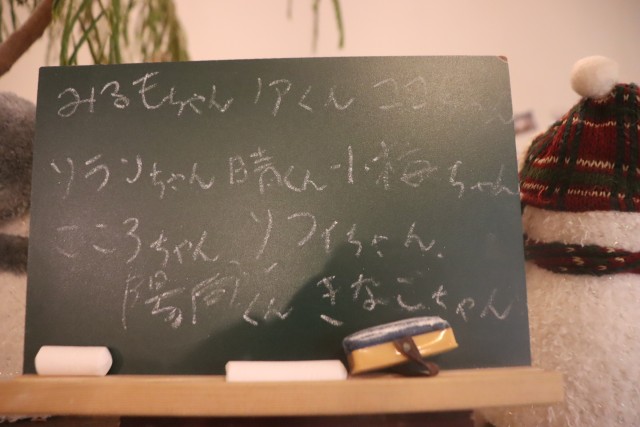 みるもちゃん ノアくん ココちゃん
ソランちゃん 晴くん 小梅ちゃん
こころちゃん、ソフィちゃん、
陽向くん きなこちゃん